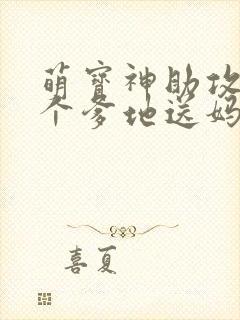 萌寶神助攻
个爹地送妈
喜夏